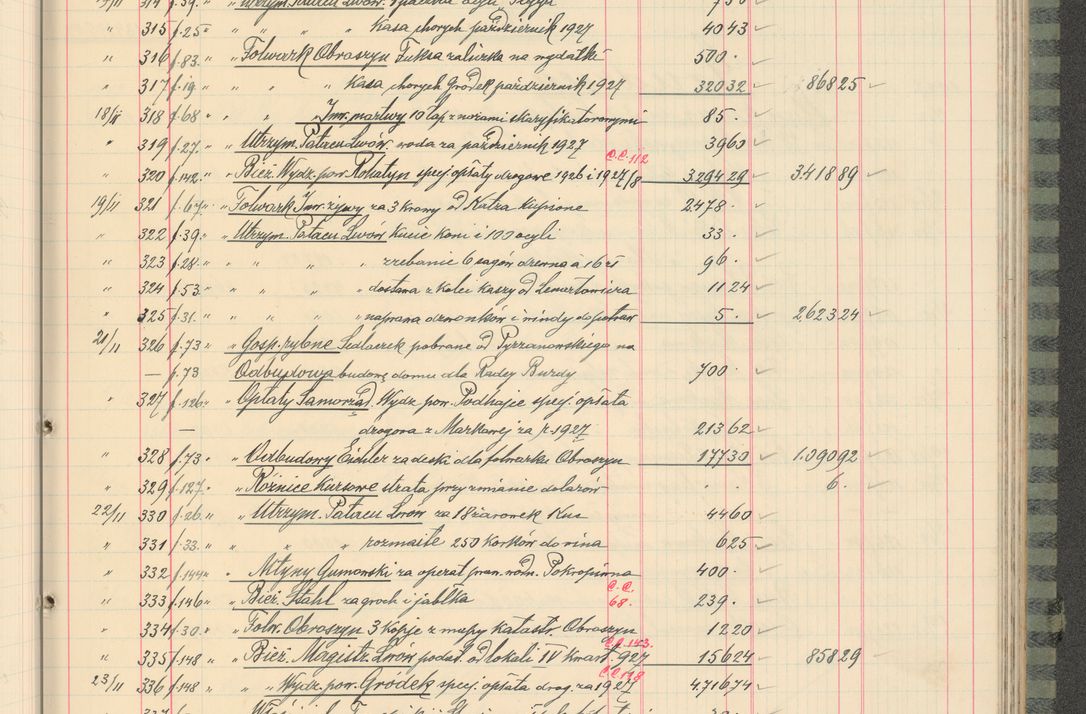 " 315 f.25 " " " " Kasa chorych październik 1927 40 43
" 316 f.83. " Folwark Obroszyn Fuksa zaliczka na wydatki 500 .
" 317 f.19 " " " " Kasa chorych Gródek październik 1927 320 32 868 25
18/11 318 f.68 " " " Inw. martwy 10 łap z nożami skaryfikatorowymi 85 .
" 319 f.27. " Utrzym. Pałacu Lwów. woda za październik 1927 39 60
C.C. 112
" 320 f.142. " Bież. Wydz. pow. Rohatyn specj. opłaty drogowe 1926 i 1927/8 3294 29 3.418 89
19/11 321 f.67. " Folwark Inw. żywy za 3 krowy od Katza kupione 2.478 .
" 322 f.39. " Utrzym. Pałacu Lwów Kucie koni i 100 ocyli 33 .
" 323 f.28. " " " " " zrebanie 6 sagów drzewa à 16 zł 96 .
" 324 f.53. " " " " " dostawa z kolei Kaszy od Lenartowicza 11 24
" 325 f.31. " " " " " naprawa dzwonków i windy do potraw 5 . 2623 24
21/11 326 f.73 " Gosp. rybne Sedlaczek pobrane od Pyrzanowskiego na
— f.73 Odbudowa budowę domu dla Radcy Burdy 700 .
" 327 f.126. " Opłaty Samorząd. Wydz. pow. Podhajce specj. opłata
— drogowa z Markowej za r. 1927 213 62
" 328 f.73 " Odbudowy Eichler za deski dla folwarku Obroszyn 177 30 1.090 92
" 329 f.127. " Różnice Kursowe strata przy zmianie dolarów . . 6 .
22/11 330 f.26. " Utrzym. Pałacu Lwów za 18 żarowek Kus 44 60
" 331 f.33. " " " " rozmaite 250 korków do wina 6 25
" 332 f.144 " Młyny Gumowski za operat praw. wodn. Pokropiwna 400 .
C.C. 68.
" 333 f.146 " Bież. Stahl za groch i jabłka 239 .
" 334 f.30. " Folw. Obroszyn 3 kopje z mapy katastr. Obroszyn 12 20
C.C. 143.
" 335 f.148 " Bież. Magistr. Lwów podat. od lokali IV kwart. 927 156 24 858 29
C.C. 118
23/11 336 f.148 " " Wydz. pow. Gródek specj. opłata drog. za 1927 4.716 74